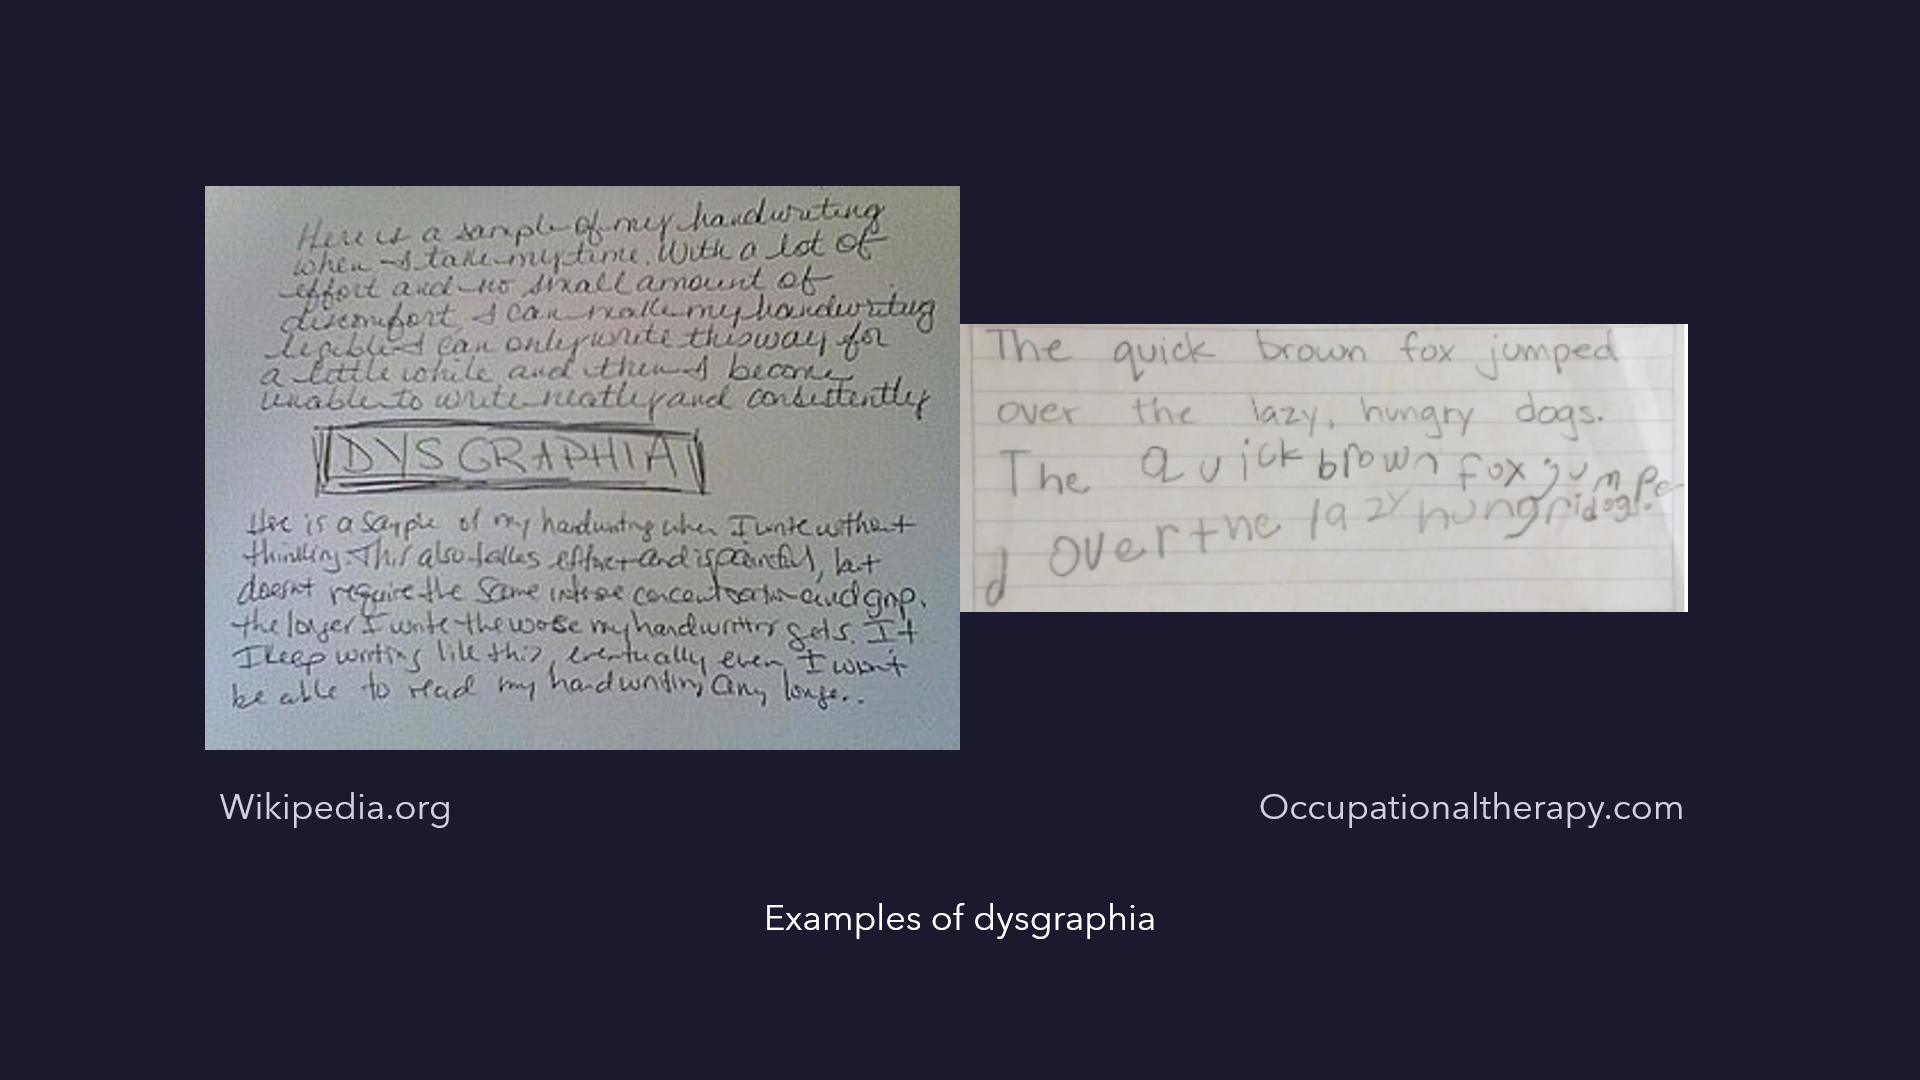 Here is a sample of my handwriting
when I take my time. With a lot of
effort and no small amount of
discomfort I can make my handwriting
legible I can only write this way for
a little while and then I become
unable to write neatly and consistently
DYSGRAPHIA
Here is a sample of my handwriting when I write without
thinking. This also takes effort and is painful, but
doesn't require the same intense concentration and grip.
the longer I write the worse my handwriting gets. If
I keep writing like this, eventually even I won't
be able to read my handwriting any longer..
The quick brown fox jumped
over the lazy, hungry dogs.
The quick brown fox jumpe
d over the lazy hungri dogs.
Wikipedia.org
Occupationaltherapy.com
Examples of dysgraphia